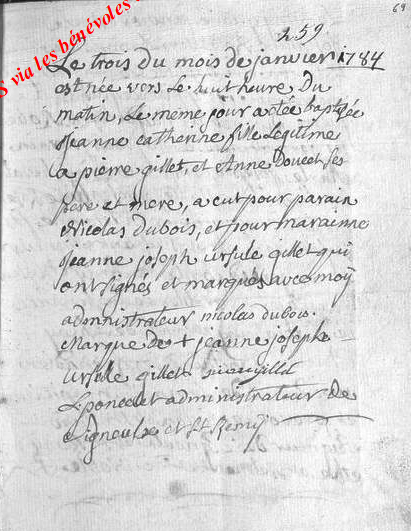 69
S via les bénévoles
259
Le trois du mois de janvier 1784
est née vers Le huit heure Du
matin, Le meme jour a etée baptisée
jeanne catherine fille Legitime
a pierre gillet, et Anne Doucet ses
pere et mere, a eut pour parain
Nicolas dubois, et pour marainne
jeanne joseph ursule gillet qui
ont signés et marqués avec moÿ
administrateur nicolas dubois
Marque de + jeanne josephe
ursule gillet
L poncelet administrateur De
Signeulx et St Remÿ